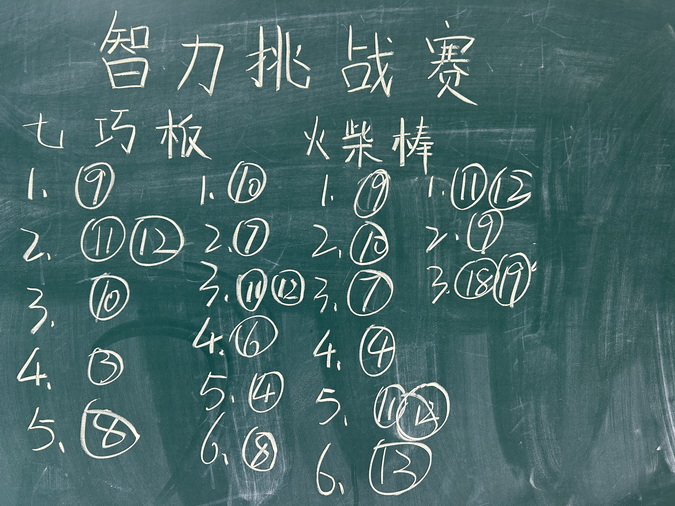 智力挑战赛
七巧板 火柴棒
1. ⑨ 1. ⑩ 1. ⑨ 1. ⑪⑫
2. ⑪⑫ 2. ⑦ 2. ⑩ 2. ⑨
3. ⑩ 3. ⑪⑫ 3. ⑦ 3. ⑱⑲
4. ③ 4. ⑥ 4. ④
5. ⑧ 5. ④ 5. ⑪⑫
6. ⑧ 6. ⑬